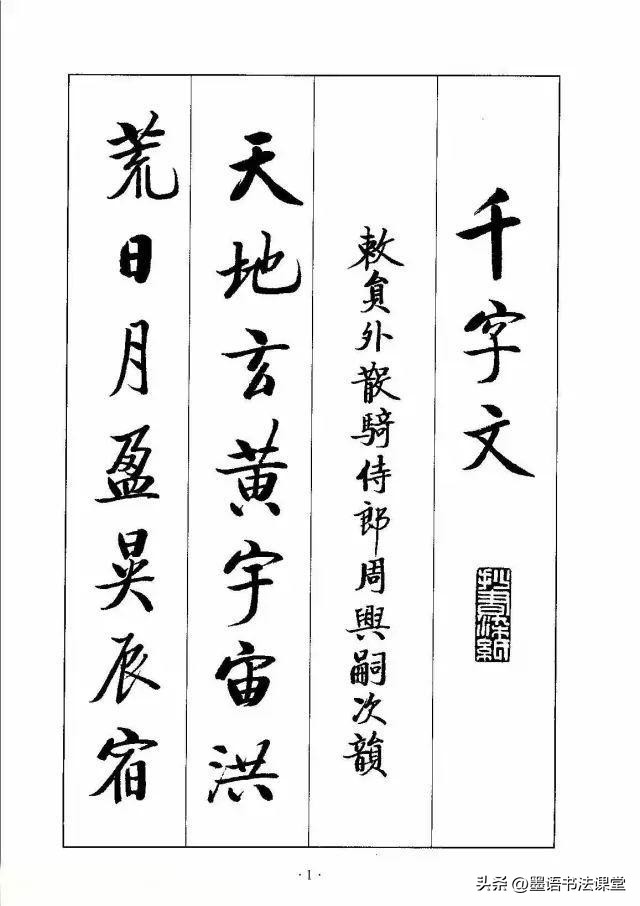 千字文
敕員外散騎侍郎周興嗣次韻
天地玄黄宇宙洪
荒日月盈昃辰宿
·1·
头条@墨语书法课堂